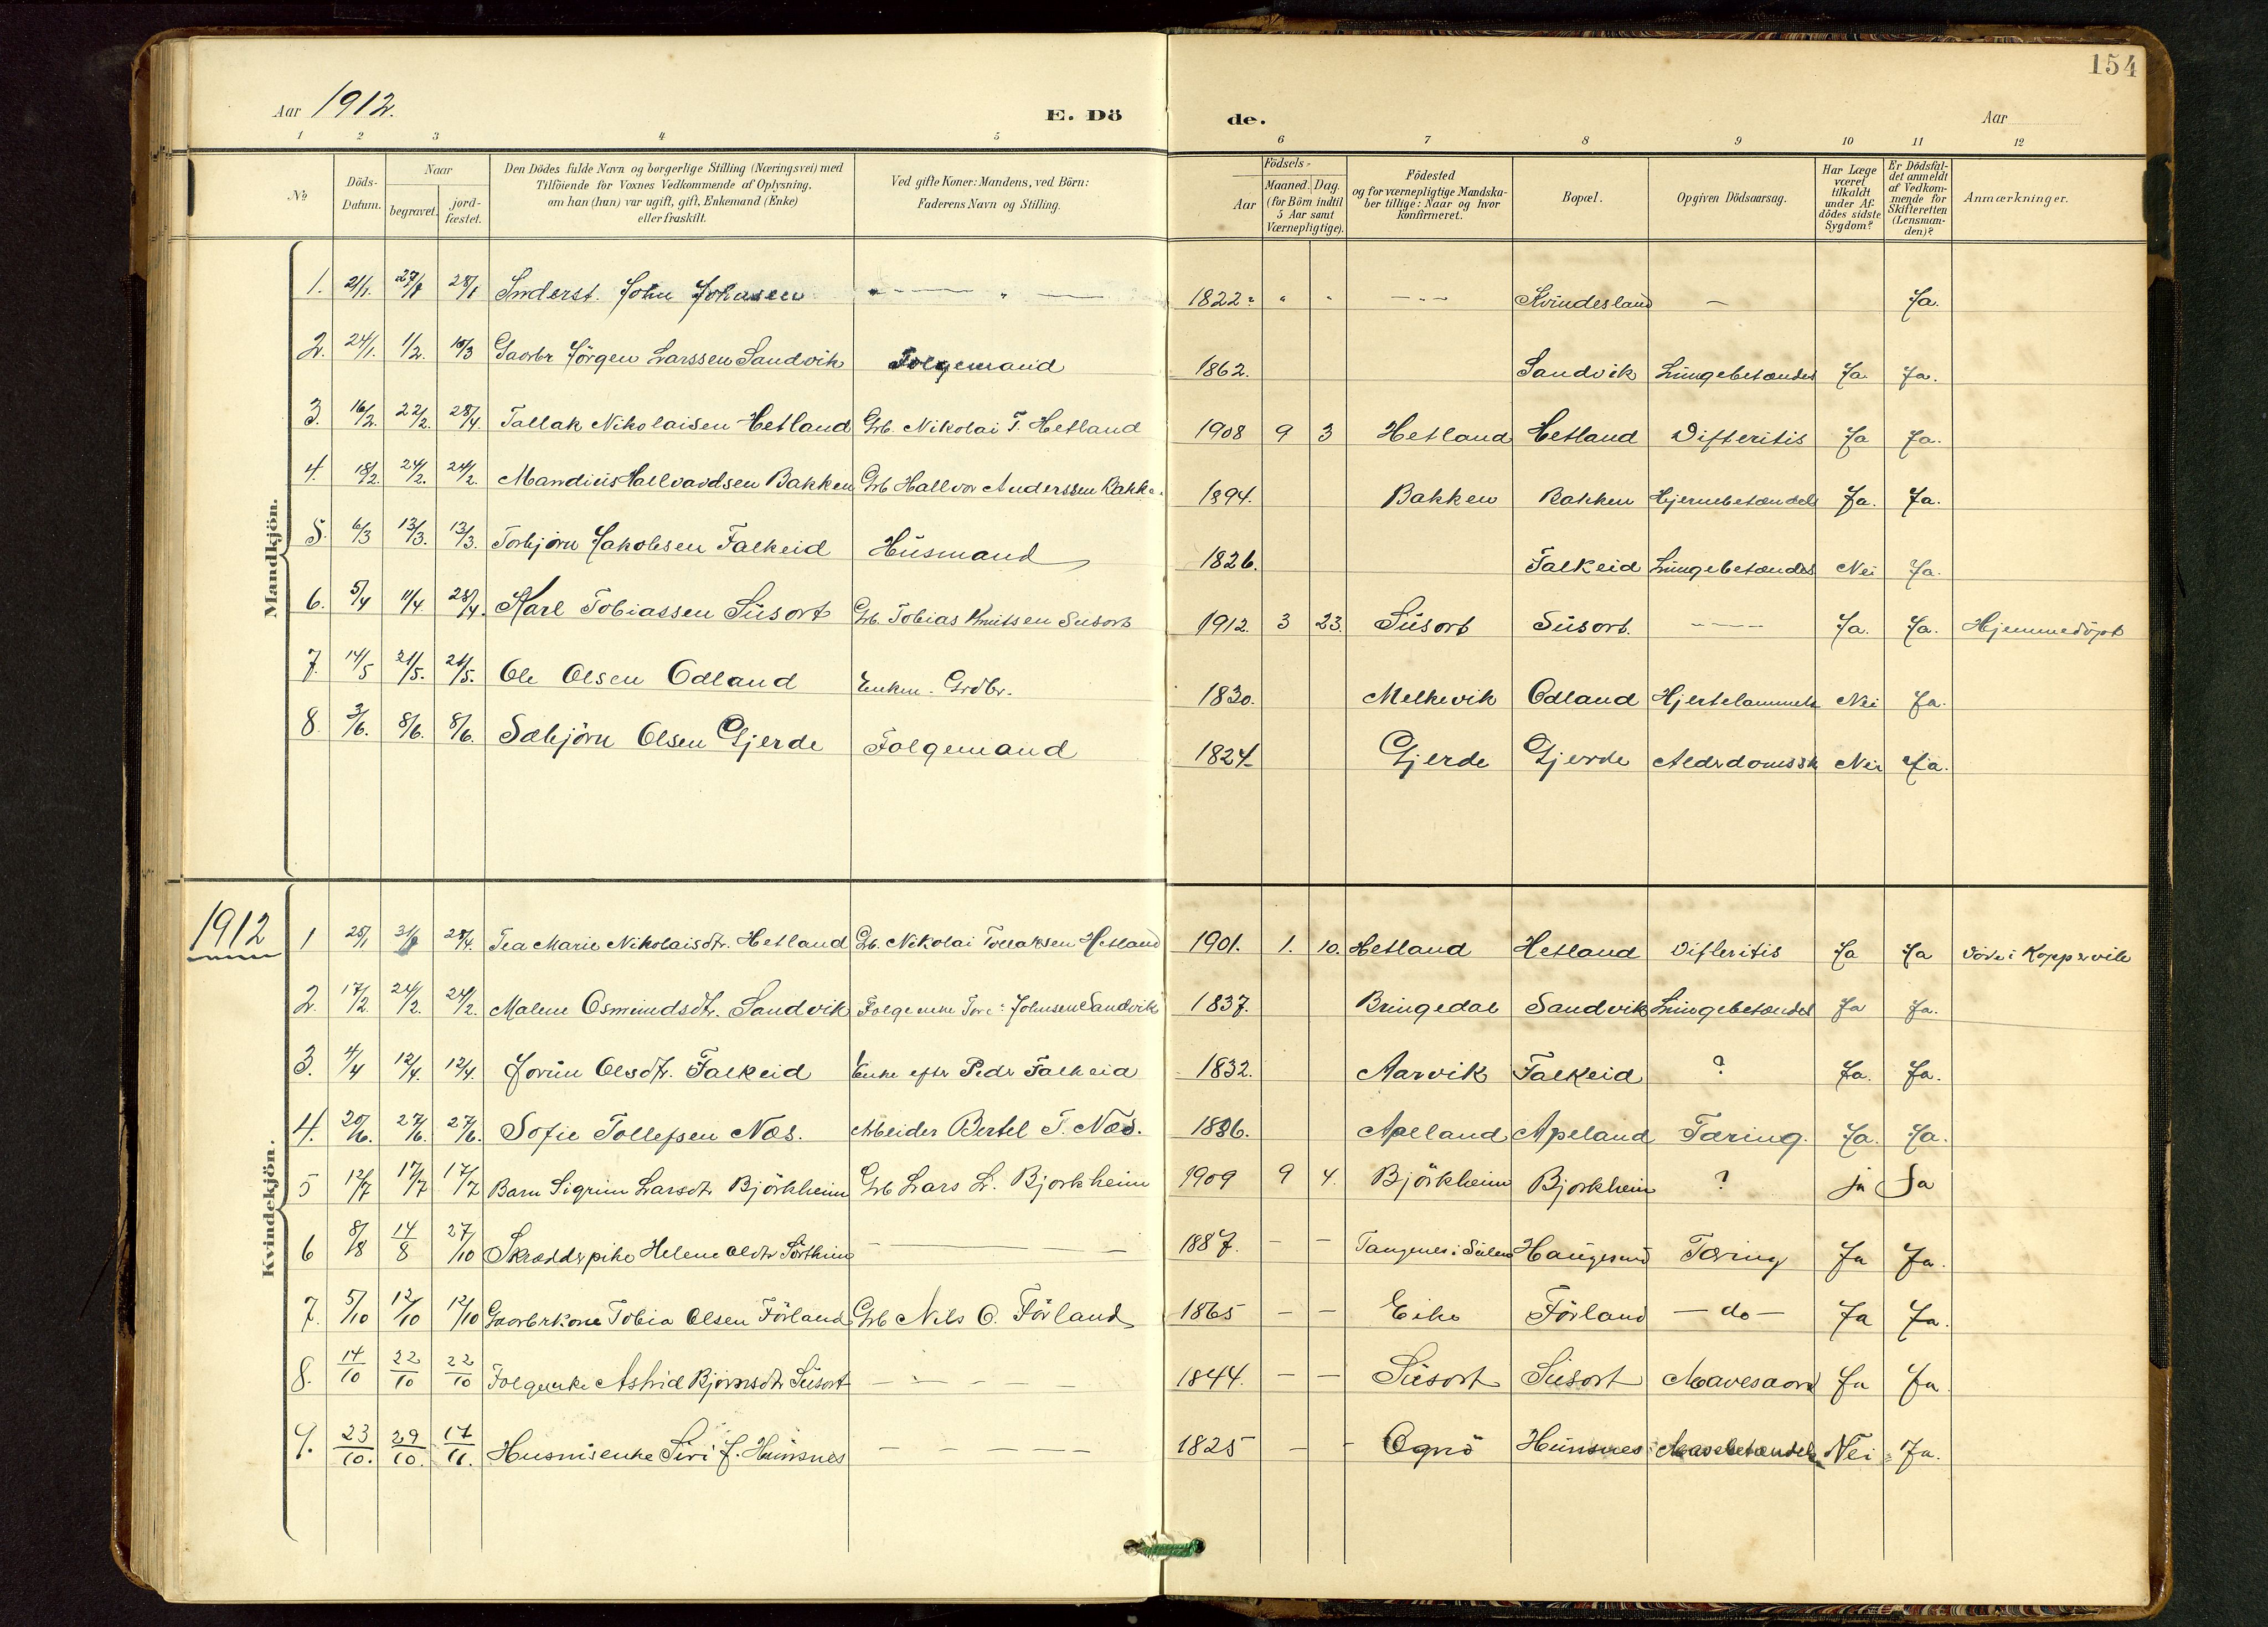 154
Aar 1912. E. Dö de. Aar
1 2 3 4 5 6 7 8 9 10 11 12
No. Döds-Datum. Naar begravet. jord-fæstet. Den Dödes fulde Navn og borgerlige Stilling (Næringsvei) med Tilföiende for Voxnes Vedkommende af Oplysning, om han (hun) var ugift, gift, Enkemand (Enke) eller fraskilt. Ved gifte Koner: Mandens, ved Börn: Faderens Navn og Stilling. Födsels- Aar Maaned. Dag. (for Börn indtil 5 Aar samt Værnepligtige). Födested og for værnepligtige Mandskaber tillige: Naar og hvor konfirmeret. Bopæl. Opgiven Dödsaarsag. Har Læge været tilkaldt under Afdödes sidste Sygdom? Er Dödsfaldet anmeldt af Vedkommende for Skifteretten (Lensmanden)? Anmærkninger.
Mandkjön.
1. 21/1. 27/1 28/1 Inderst. John Johasen — " — 1822 " " - - - Kvindesland — Ja.
2. 24/1. 1/2. 10/3 Gaarbr Jörgen Larssen Sandvik Folgemand 1862. Sandvik Lungebetændes Ja Ja.
3. 16/2. 22/2. 28/4. Tallak Nikolaisen Hetland Grb. Nikolai T. Hetland 1908 9 3 Hetland Hetland Difteritis Ja Ja.
4. 18/2. 24/2. 24/2. Mandius Hallvardsen Bakken Grb Hallvor Anderssen Bakke. 1894. Bakken Bakken Hjernebetændels Ja. Ja.
5. 6/3 13/3. 13/3. Torbjörn Jakobsen Falkeid Husmand 1826. Falkeid Lungebetændes Nei Ja.
6. 5/4 11/4. 28/4. Karl Tobiassen Susort Grb. Tobias Knutsen Susort 1912. 3 23. Susort Susort. - - - Ja. Ja. Hjemmedöpt
7. 14/5 21/5. 21/5. Ole Olsen Odland Enkem. Grdbr. 1830. Melkevik Odland Hjertelammels Nei Ja.
8 3/6. 8/6. 8/6. Sæbjörn Olsen Gjerde Folgemand 1824 Gjerde Gjerde Alderdomssk Nei Ja.
Kvindekjön.
1912
1 25/1 31/1 28/4. Tea Marie Nikolaisdtr. Hetland Grb. Nikolai Tollaksen Hetland 1901. 1. 10. Hetland Hetland Difteritis Ja Ja Döde i Kopervik
2. 17/2. 24/2. 24/2. Malene Osmundsdtr. Sandvik Johnsen Sandvik 1837. Bringedal Sandvik Lungebetændel Ja Ja.
3. 4/4 12/4. 12/4. Jorun Olsdtr. Falkeid Enke efter Peder Falkeid 1832. Aarvik Falkeid ? Ja. Ja.
4. 20/6. 27/6. 27/6. Sofie Tollefsen Næs. Arbeider Bertel T. Næs. 1886. Apeland Apeland Tæring. Ja. Ja.
5 12/7 17/7 17/7 Barn Sigrun Larsdtr Björkheim Grb Lars L. Bjorkheim 1909 9 4. Björkheim Bjorkheim ? ja Ja
6 8/8 14/8 27/10 Skrædderpike Helene Oldtr — — 1887. — — Haugesund Tæring Ja Ja.
7. 5/10 12/10 12/10 Gaarbrkone Tobia Olsen Förland Grb Nils O. Förland 1865 — — Eike Förland — do — Ja Ja.
8. 14/10 22/10 22/10 Folgeenke Astrid Bjornsdtr Susort — — — — 1844. — — Susort Susort Mavesaar Ja Ja
9. 23/10. 29/10. 17/11. Husmsenke Siri J. Hunsnes — — — — 1825 — - Ognö Hunsnes Mavebetændels Nei Ja.